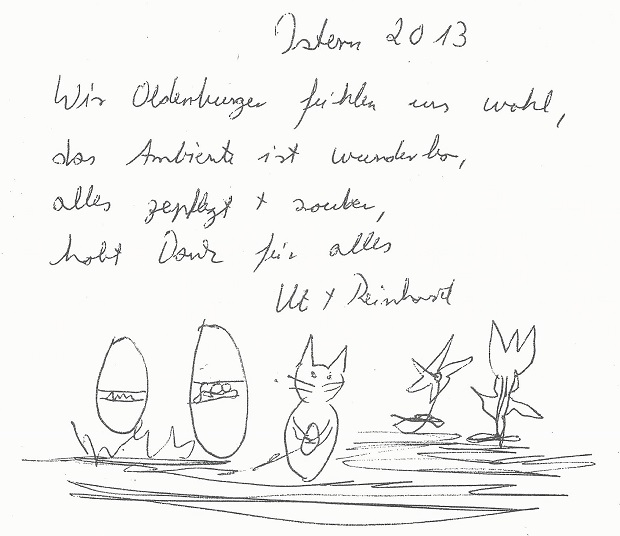 Ostern 2013
Wir Oldenburger fühlen uns wohl,
das Ambiente ist wunderbar,
alles gepflegt + sauber,
habt Dank für alles
Ut + Reinhard